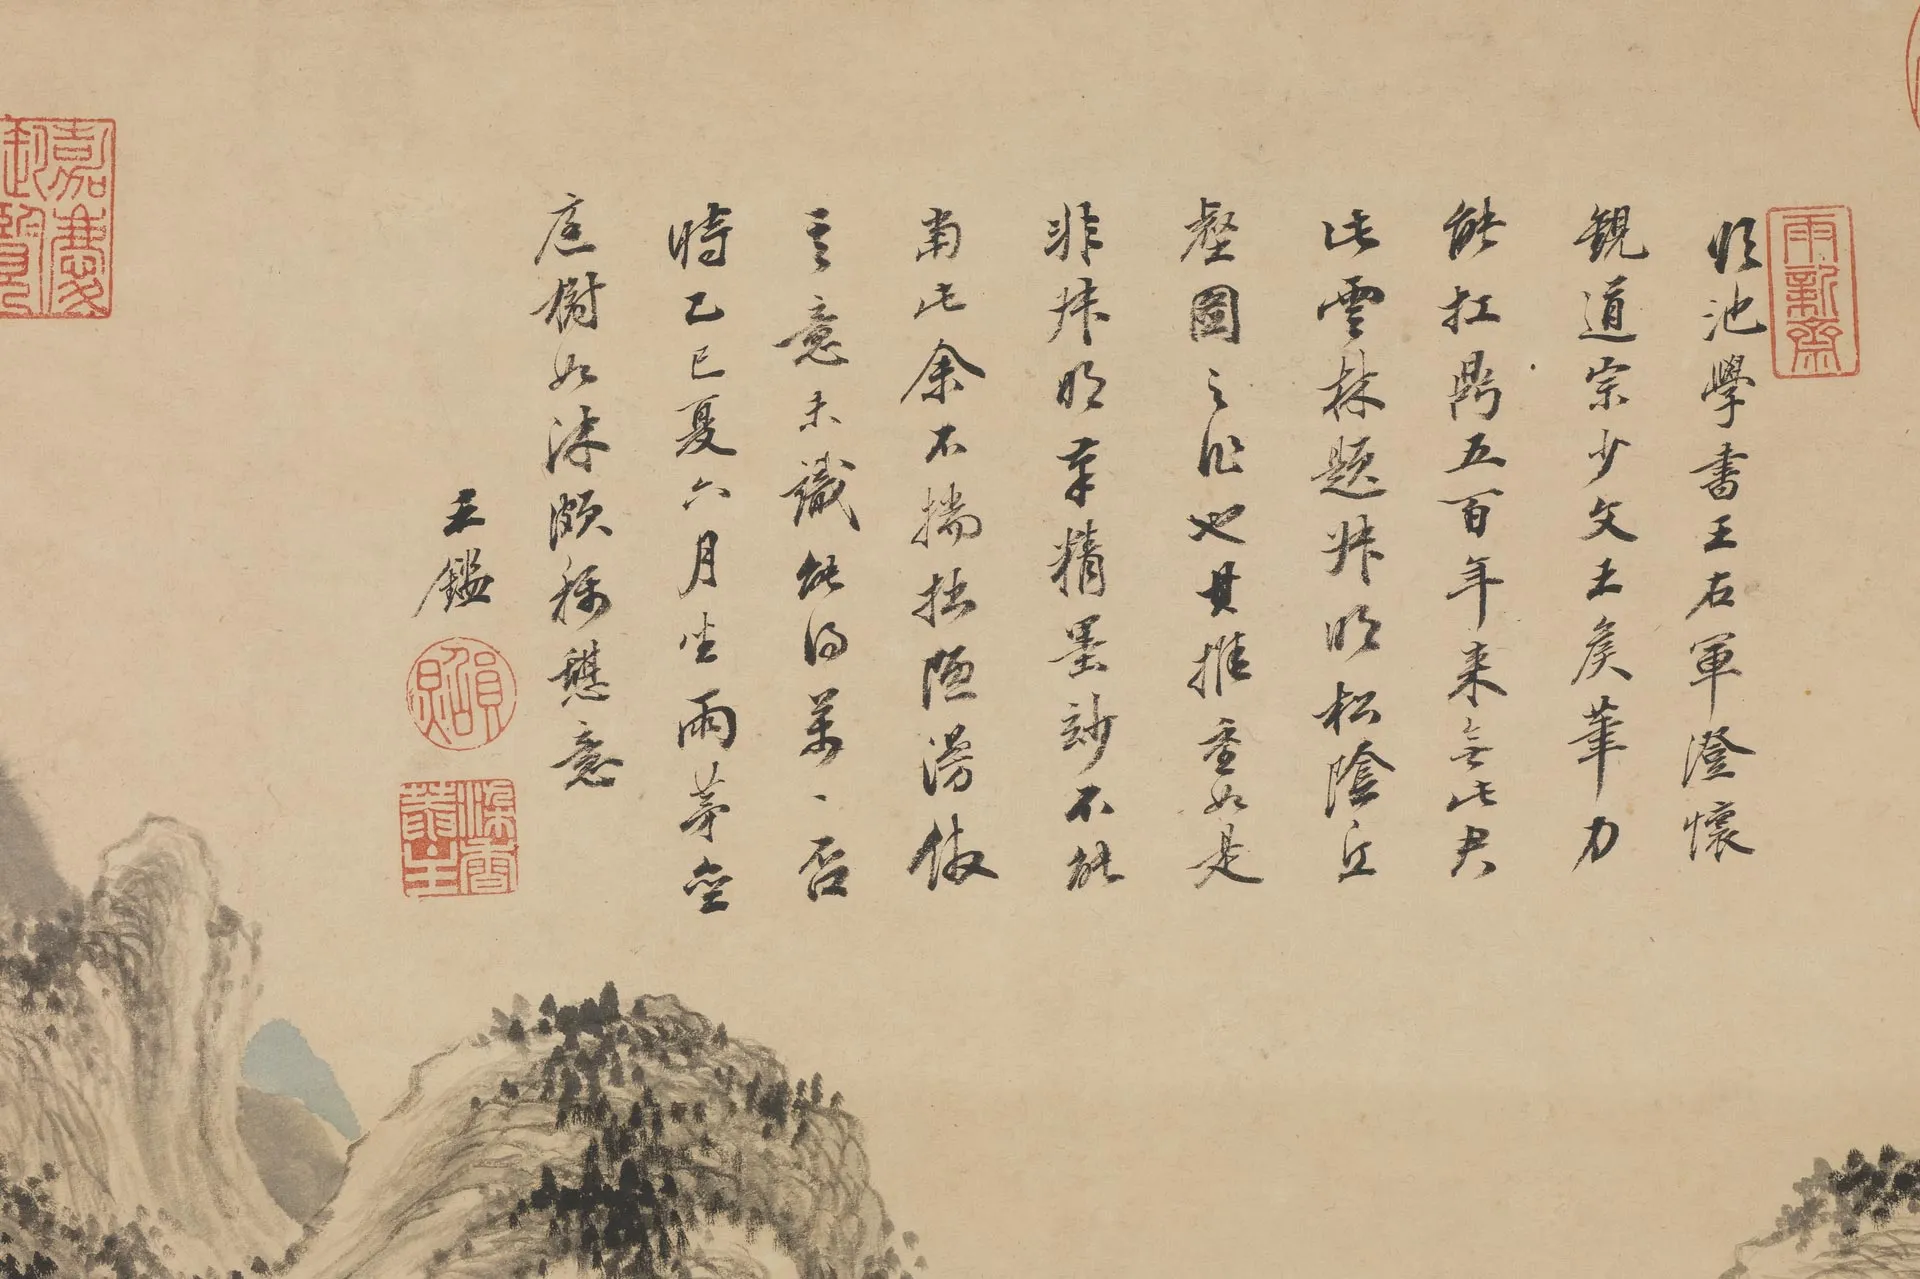 雨新齋
臨池學書王右軍澄懷
觀道宗少文王侯筆力
能扛鼎五百年來無此君
此雲林題叔明松陰丘
壑圖之作也其推重如是
非叔明筆精墨妙不能
當此余不揣拙陋漫倣
其意未識能得萬一否
時乙巳夏六月坐雨茅堂
庭樹如沐頗稱愜意
王鑑
員照
染香菴主
嘉慶御覽之